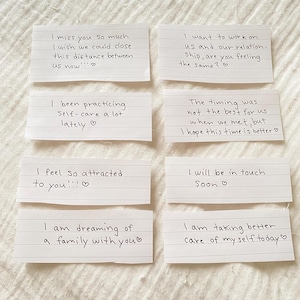 I miss you so much
I wish we could close
this distance between
us now!!! ♡
I want to work on
us and our relation
ship, are you feeling
the same? ♡
I been practicing
self-care a lot
lately ♡
The timing was
not the best for us
when we met, but
I hope this time is better ♡
I feel so attracted
to you!!! ♡
I will be in touch
soon ♡
I am dreaming of
a family with you ♡
I am taking better
care of myself today ♡